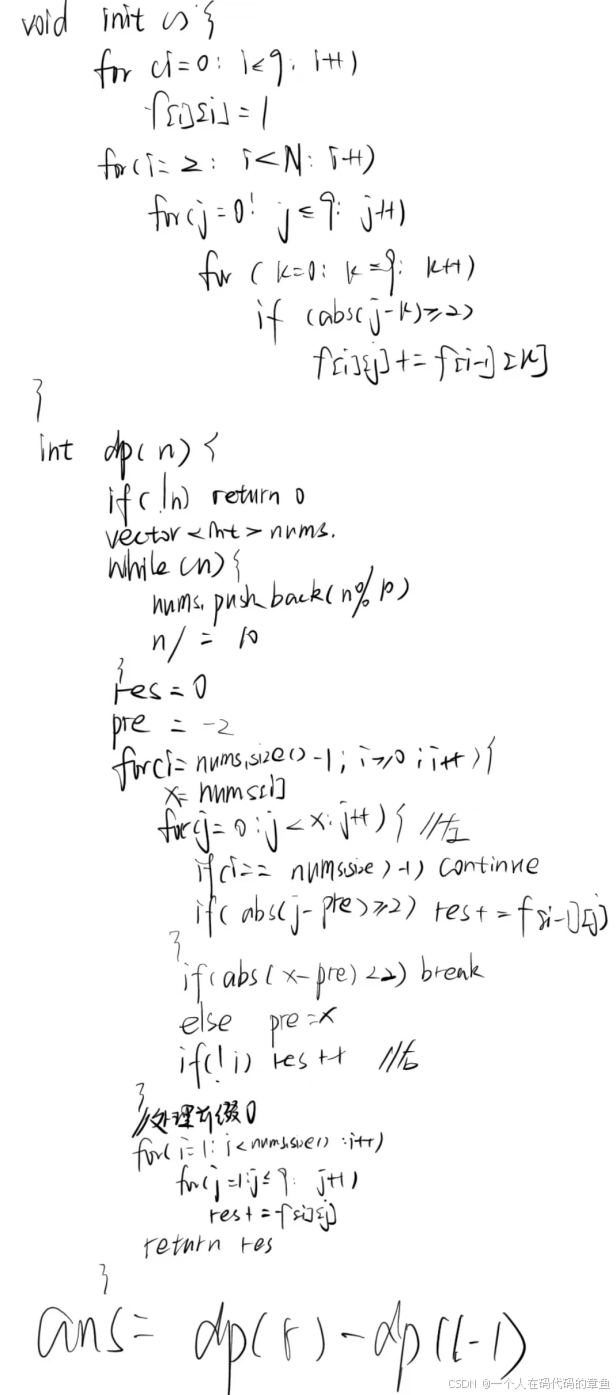 void init () {
for (i=0; i≤9; i++)
f[i][i]=1
for(i=2; i<N; i++)
for(j=0; j≤9; j++)
for (k=0; k=9; k++)
if (abs(j-k)≥2)
f[i][j]+=f[i-1][k]
}
int dp(n) {
if(!n) return 0
vector<int> nums.
while(n){
nums.push back(n%10)
n/=10
}
res=0
pre = -2
for(i=nums.size()-1; i≥0; i++){
x=nums[i]
for(j=0; j<x; j++){ //左
if(i== nums.size)-1) continue
if(abs(j-pre)≥2) res+=f[i-1][j]
}
if(abs(x-pre)<2) break
else pre=x
if(!i) res++ //右
}
//处理前缀0
for(i=1; i<nums.size() ; i++)
for(j=1; j≤9; j++)
res+=f[i][j]
return res
}
ans= dp(r)-dp(l-1)
CSDN @一个人在码代码的章鱼